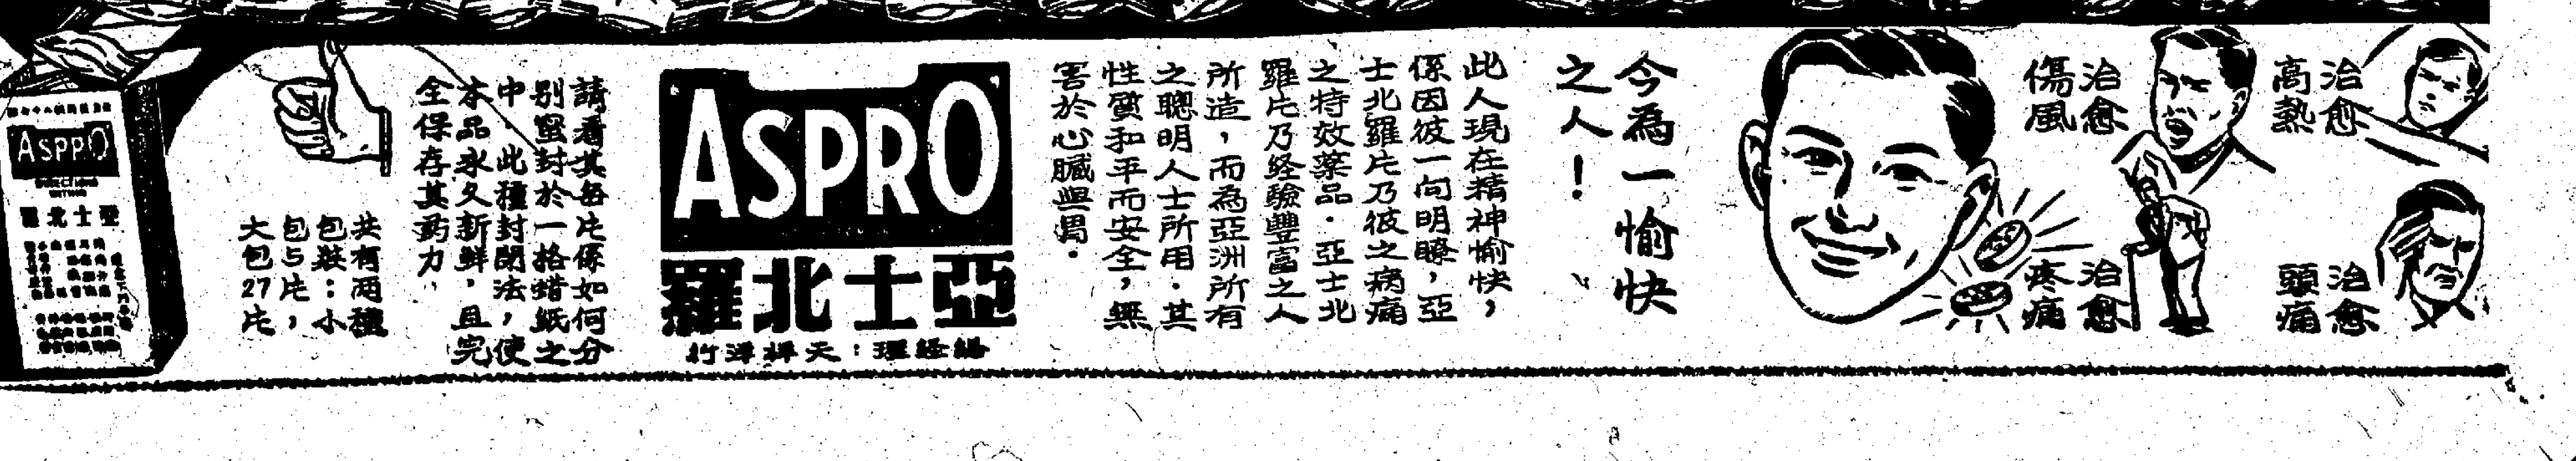 治愈
高熱
治愈
頭痛
治愈
傷風
治愈
疼痛
今為一愉快
之人！
此人現在精神愉快，
係因彼一向明瞭，亞
士北羅片乃彼之病痛
之特效藥品．亞士北
羅片乃经驗豐富之人
所造，而為亞洲所有
之聰明人士所用．其
性質和平而安全，無
害於心臟與胃．
ASPRO
羅北士亞
行洋祥天：理經總
請看其每片係如何分
别密封於一格蜡紙之
中．此種封閉法，使
本品永久新鮮，且完
全保存其药力．
共有两種
包裝：小
包5片，
大包27片
ASPRO
羅北士亞